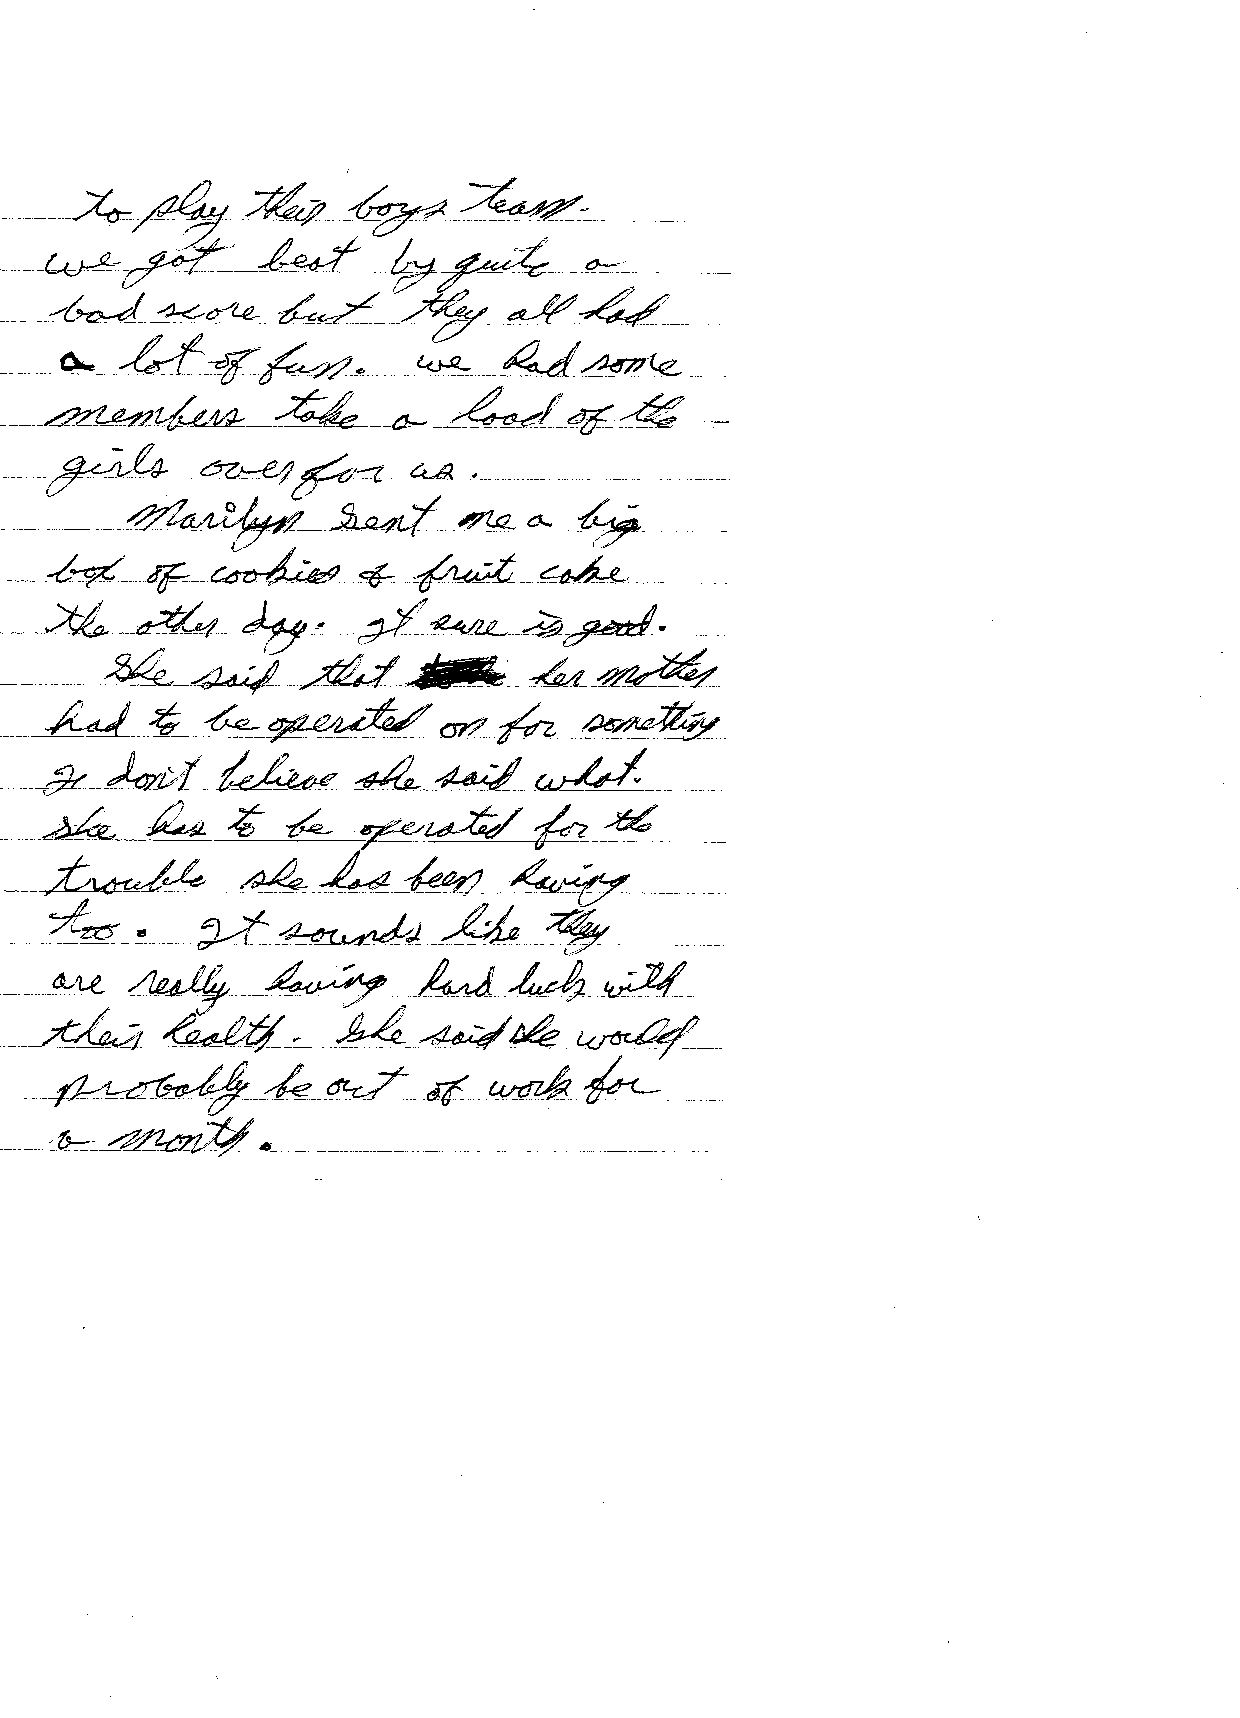 to play their boys team.
we got beat by quite a
bad score but they all had
a lot of fun. we had some
members take a load of the
girls over for us.
Marilyn sent me a big
box of cookies & fruit cake
the other day. It sure is good.
She said that her mother
had to be operated on for something
I don't believe she said what.
She has to be operated for the
trouble she has been having
too. It sounds like they
are really having hard luck with
their health. She said she would
probably be out of work for
a month.